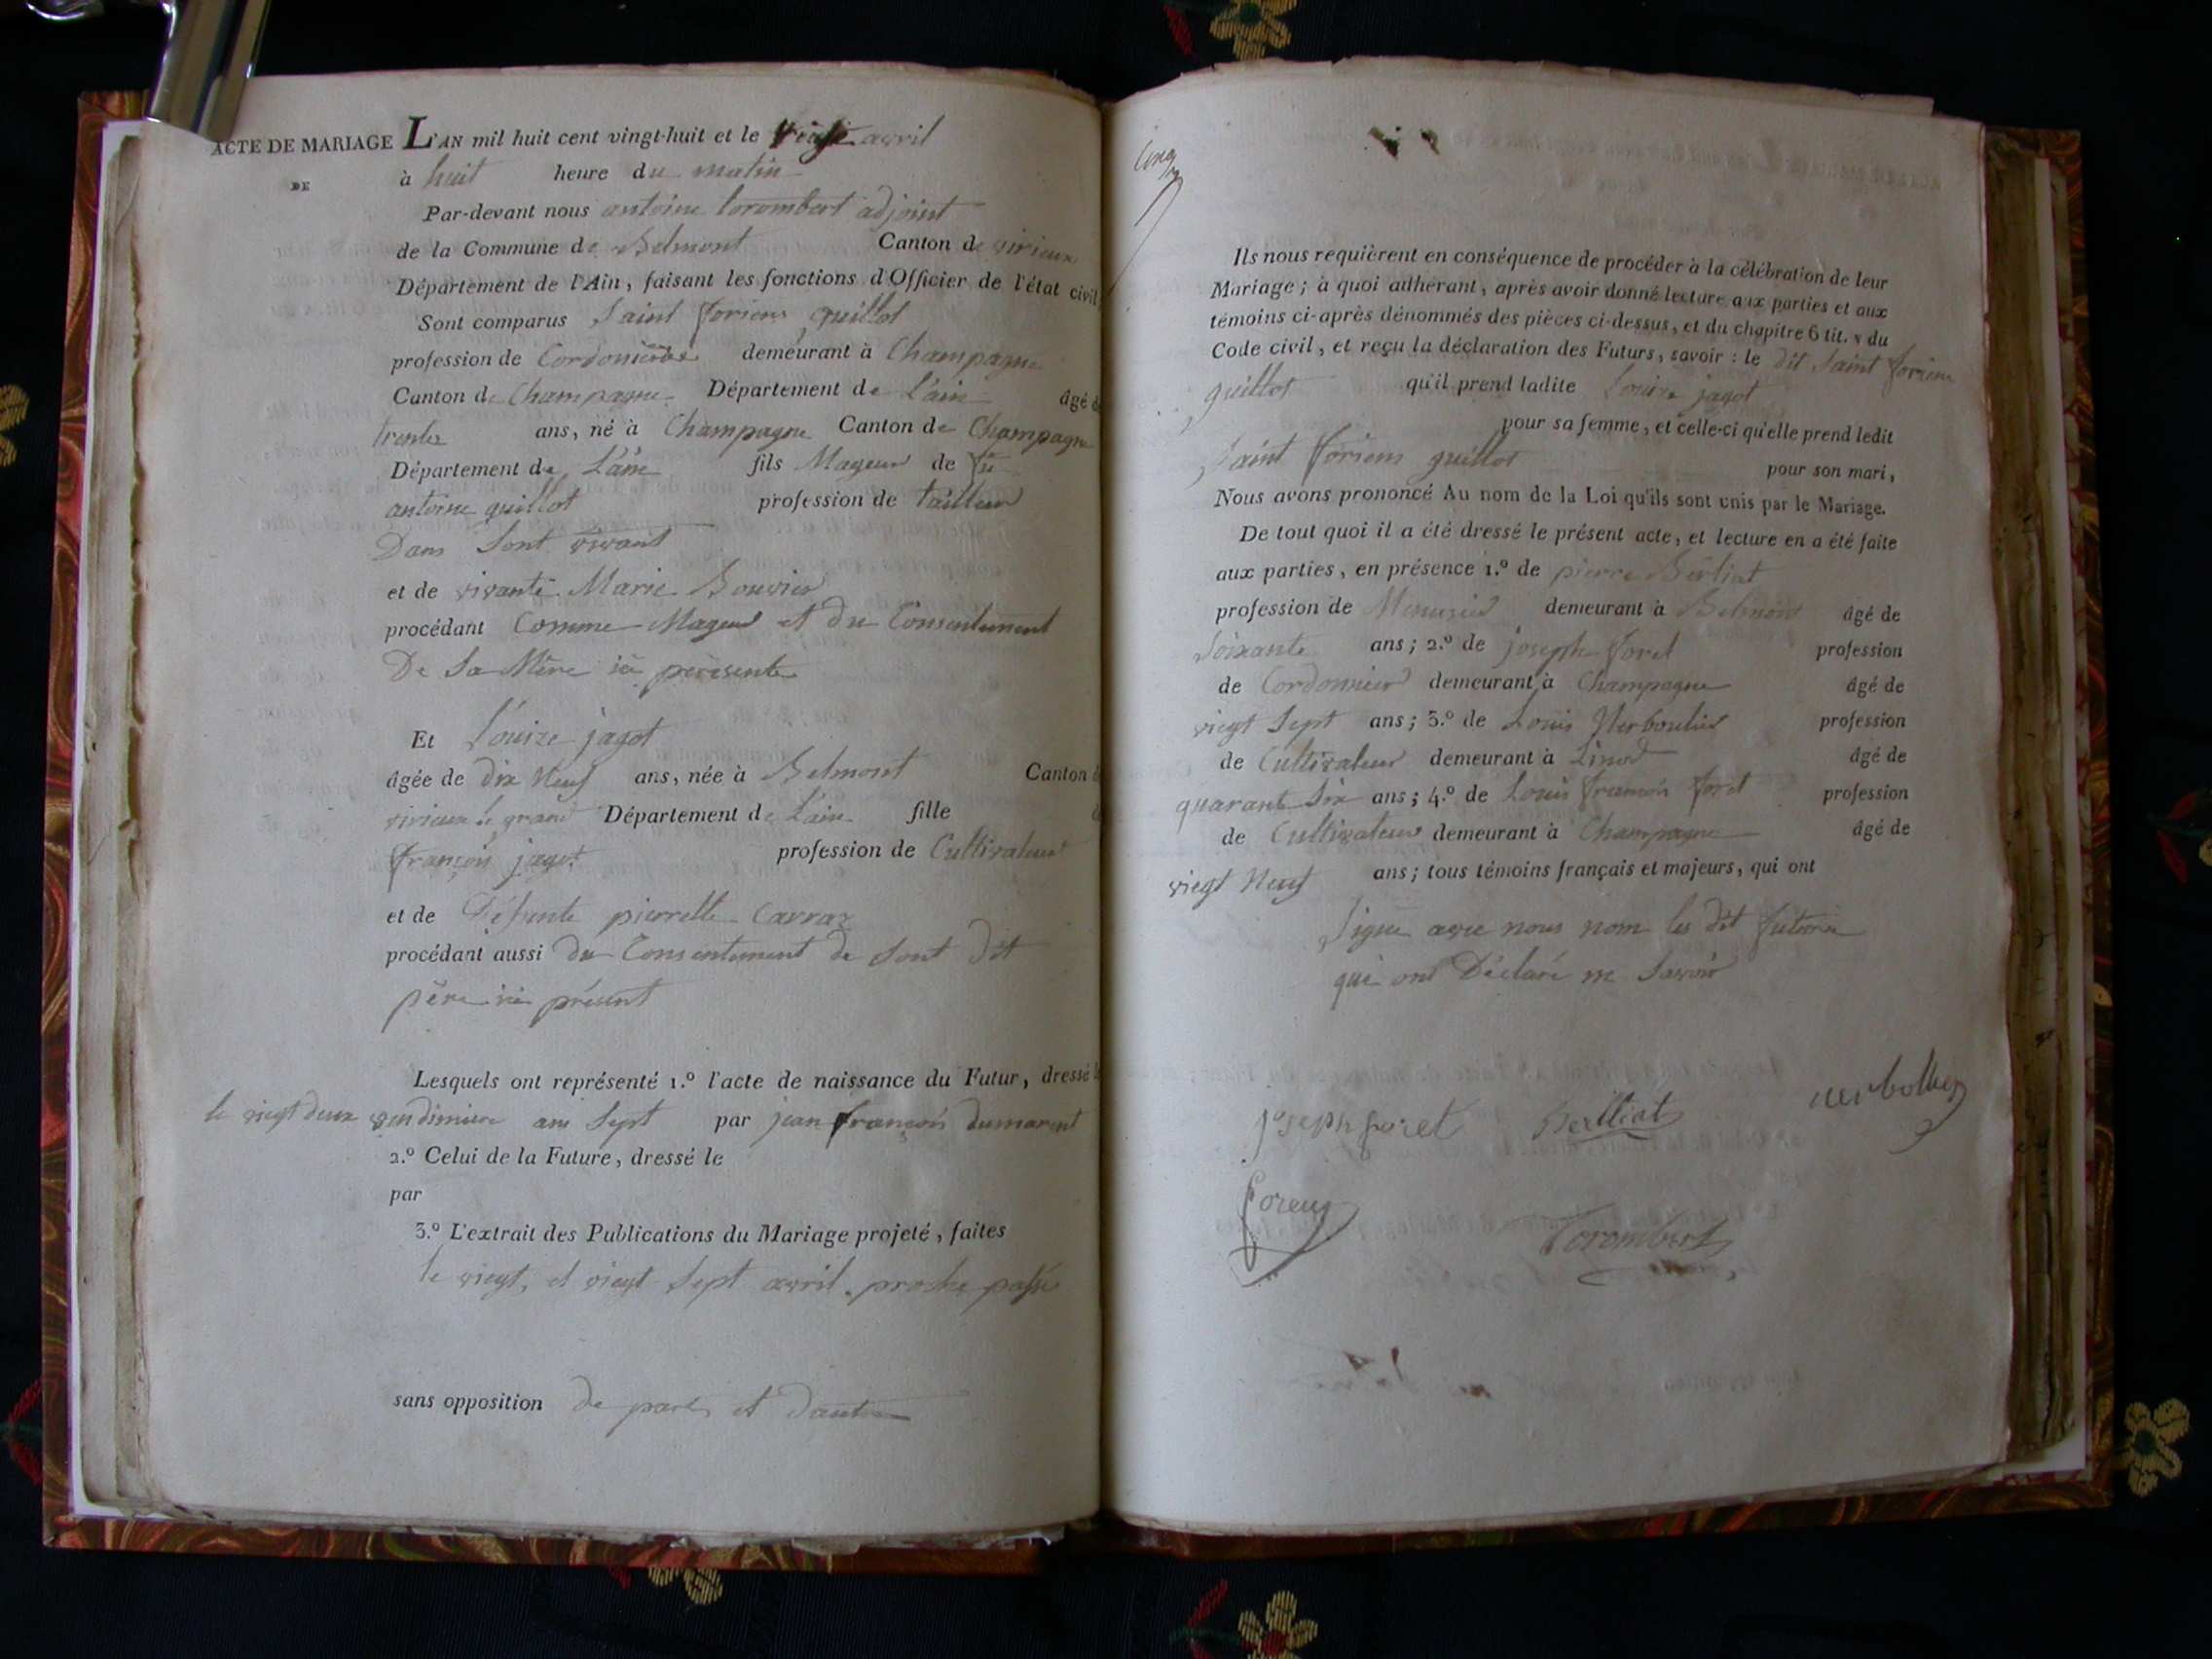 ACTE DE MARIAGE L'AN mil huit cent vingt-huit et le avril
DE
à huit heure du matin
Par-devant nous antoine torombert adjoint
de la Commune de Belmont Canton de virieux
Département de l'Ain, faisant les fonctions d'Officier de l'état civil
Sont comparus Saint foriens guillot
profession de demeurant à Champagne
Canton de Champagne Département de L'ain âgé de
trente ans, né à Champagne Canton de Champagne
Département de L'ain fils Mageur de fu
antoine guillot profession de tailleur
Dans Sont vivant
et de vivante Marie Bouvier
procédant Comme Mageur et du Consentement
De Sa Mère ici présente
Et Louize jagot
âgée de dix Neuf ans, née à Belmont Canton de
virieux le grand Département de L'ain fille
françois jagot profession de Cultivateur
et de Défunte pierrette Carraz
procédant aussi du Consentement de Sont Dit
père ici présent
Lesquels ont représenté 1.º l'acte de naissance du Futur, dressé le
le viegt deux vendimiere ans Sept par jean françois dumarest
2.º Celui de la Future, dressé le
par
3.º L'extrait des Publications du Mariage projeté, faites
le viegt, et viegt Sept avril proche passé
sans opposition de pars et Dautre
Cinq
Ils nous requièrent en conséquence de procéder à la célébration de leur
Mariage; à quoi adhérant, après avoir donné lecture aux parties et aux
témoins ci-après dénommés des pièces ci-dessus, et du chapitre 6 tit. v du
Code civil, et reçu la déclaration des Futurs, savoir : le dit Saint foriens
guillot qu'il prend ladite Louize jagot
pour sa femme, et celle-ci qu'elle prend ledit
Saint foriens guillot pour son mari,
Nous avons prononcé Au nom de la Loi qu'ils sont unis par le Mariage.
De tout quoi il a été dressé le présent acte, et lecture en a été faite
aux parties, en présence 1.º de pierre Berliat
profession de Menusier demeurant à Belmont âgé de
Soixante ans; 2.º de joseph foret profession
de Cordonnier demeurant à Champagne âgé de
viegt Sept ans; 3.º de Louis Nerboulier profession
de Cultivateur demeurant à Linod âgé de
quarante Six ans; 4.º de Louis françois foret profession
de Cultivateur demeurant à Champagne âgé de
viegt Neuf ans; tous témoins français et majeurs, qui ont
Signé avec nous nom les dit futur
qui ont Déclaré ne Savoir
joseph foret Berlliat
Torombert